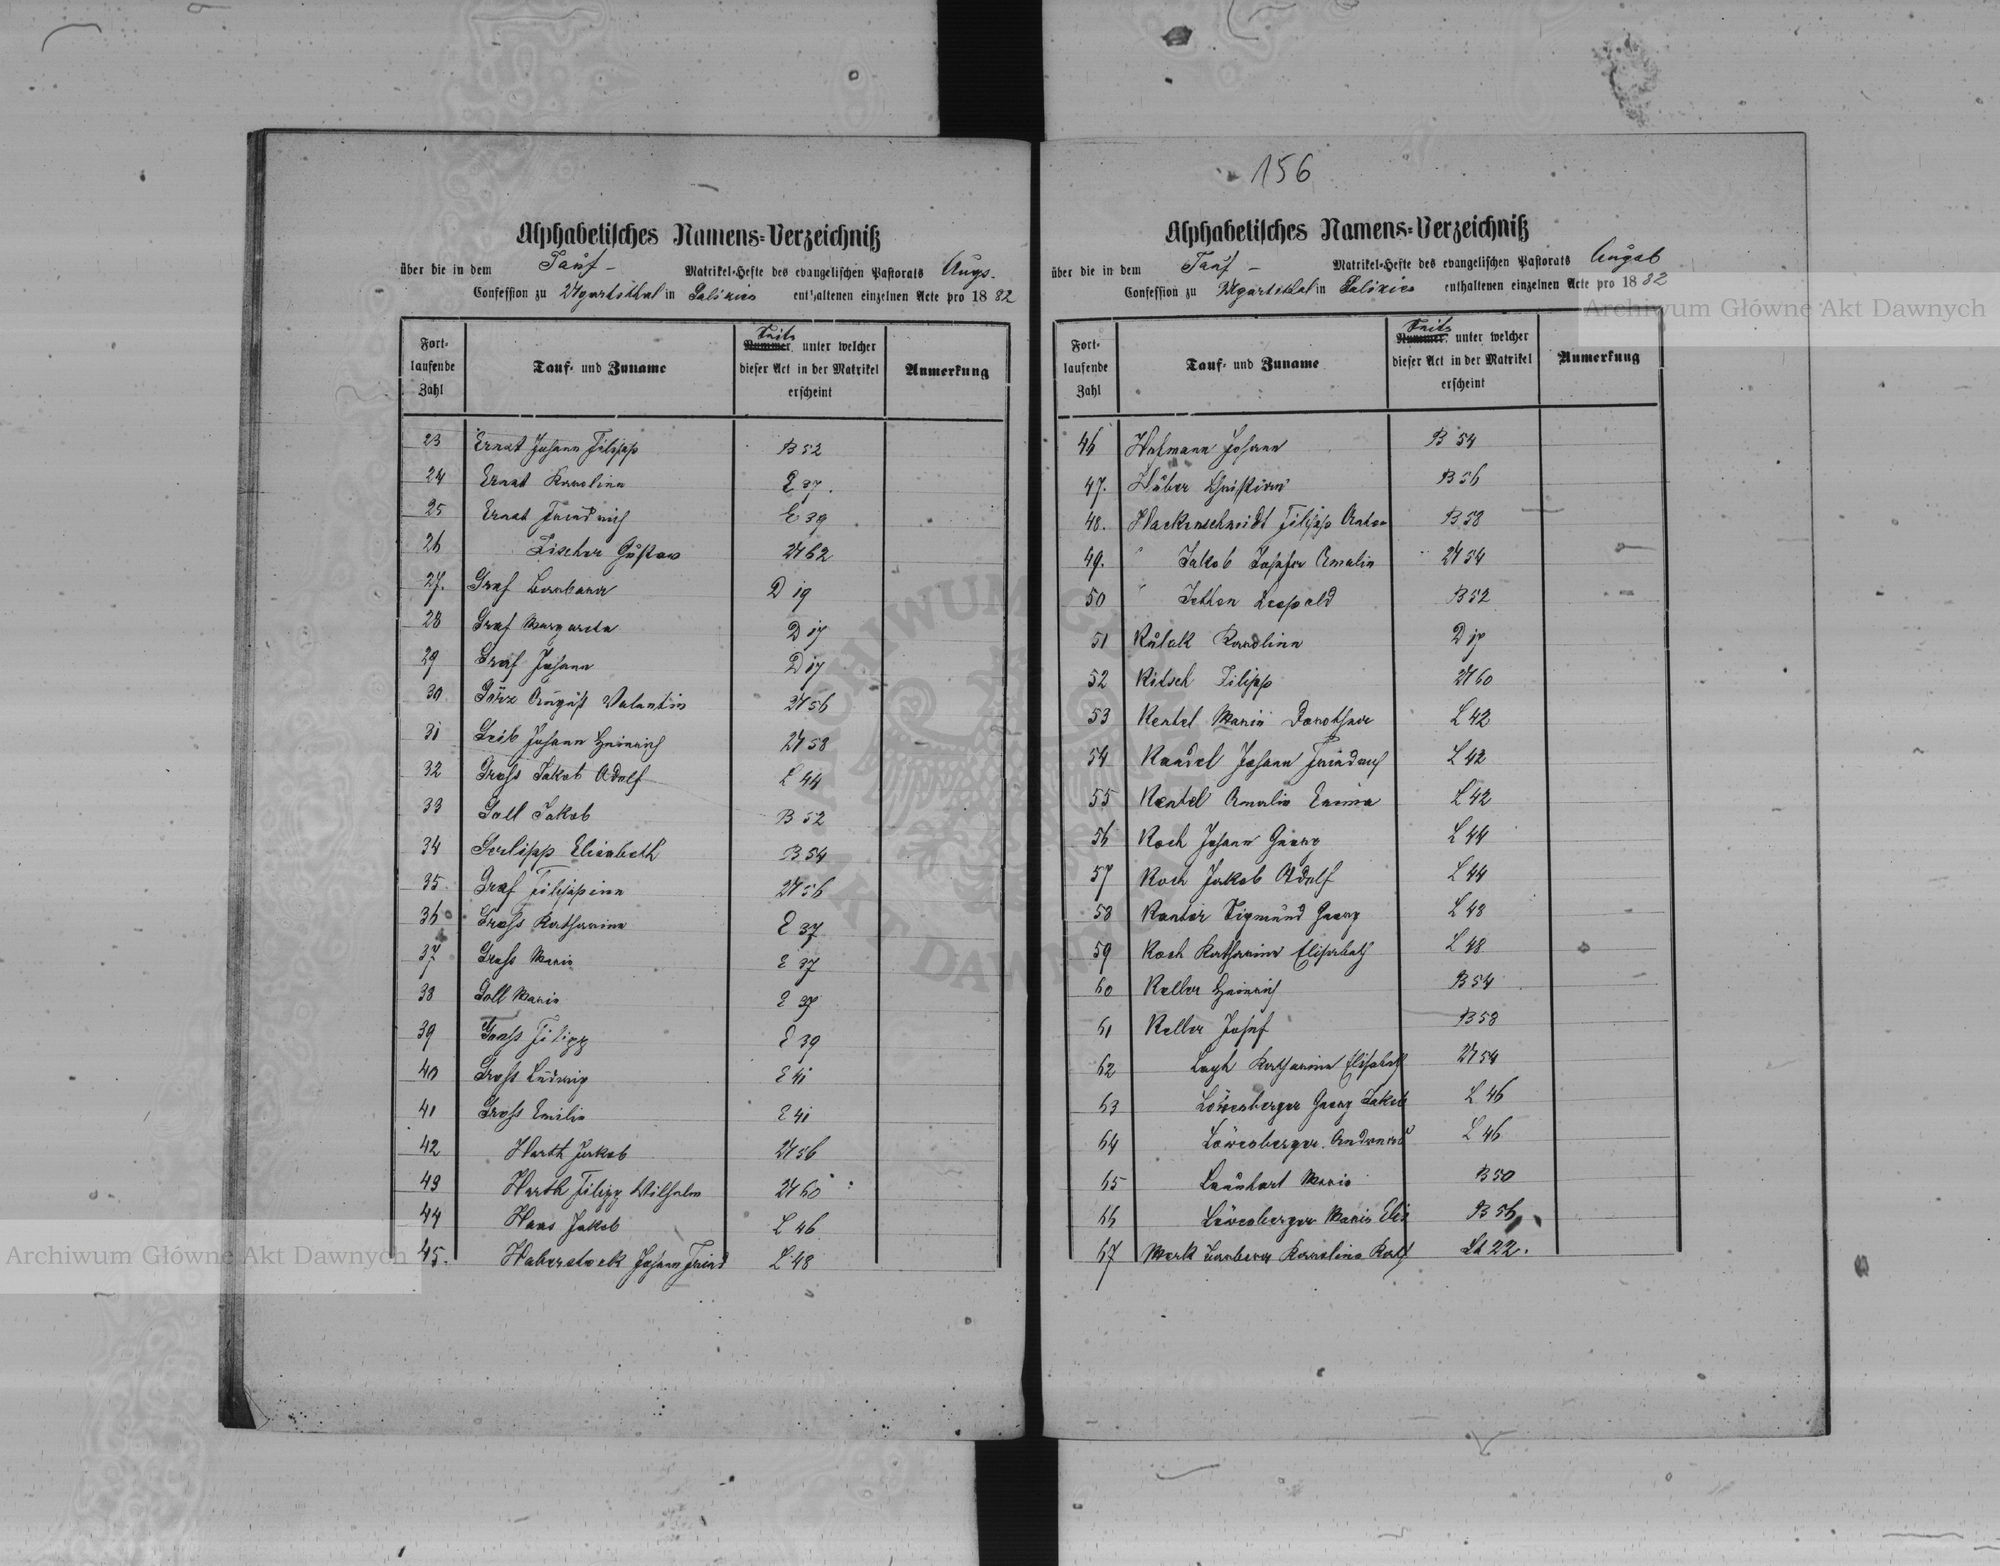 156
Alphabetisches Namens-Verzeichniß
über die in dem Tauf- Matrikel-Hefte des evangelischen Pastorats Augs.
Confession zu Ugartsthal in Galizien enthaltenen einzelnen Acte pro 1882
Fort-laufende Zahl
Tauf- und Zuname
Seite Nummer unter welcher dieser Act in der Matrikel erscheint
Anmerkung
23 Ernst Johann Filipp B 52
24 Ernst Karolina E 37.
25 Ernst Friedrich E 39
26 Fischer Gustav U 62
27. Graf Barbara D 19
28 Graf Margareta D 17
29 Graf Johann D 17
30 Görz August Valentin U 56
31 Johann Heinrich U 58
32 Gross Jakob Adolf L 44
33 Goll Jakob B 52
34 Gerlipp Elisabeth B 54
35 Graf Filippina U 56
36 Gross Katharina E 37
37 Gross Maria E 37
38 Goll Maria E 37
39 Gross Filipp E 39
40 Gross Ludwig E 41
41 Gross Emilia E 41
42 Harth Jakob U 56
43 Harth Filipp Wilhelm U 60
44 Haas Jakob L 46
45. Haberstock Johann Fried L 48
Alphabetisches Namens-Verzeichniß
über die in dem Tauf- Matrikel-Hefte des evangelischen Pastorats Augsb
Confession zu Ugartsthal in Galizien enthaltenen einzelnen Acte pro 1882
Fort-laufende Zahl
Tauf- und Zuname
Seite Nummer unter welcher dieser Act in der Matrikel erscheint
Anmerkung
46 Hofmann Johann B 54
47. Huber Christian B 56
48. Hackenschmidt Filipp Anton B 58
49. Jakob Amalia U 54
50 Leopold B 52
51 Kulak Karolina D 17
52 Kitsch Filipp U 60
53 Kentel Maria Dorothea L 42
54 Kandel Johann Friedrich L 42
55 Kentel Amalia Emma L 42
56 Koch Johann Georg L 44
57 Koch Jakob Adolf L 44
58 Kantor Sigmund Georg L 48
59 Koch Katharina Elisabeth L 48
60 Keller Heinrich B 54
61 Keller Josef B 58
62 Katharina Elisabeth U 54
63 Löwenberger Georg Jakob L 46
64 Löwenberger Andreas L 46
65 Launhart Maria B 50
66 Löwenberger Maria Elis B 56
67 Merk Barbara Karolina Kath St 22.
Archiwum Główne Akt Dawnych
Archiwum Główne Akt Dawnych